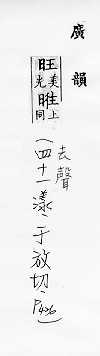 廣韻
旺美光暀上同
去聲(四十一漾、于放切、P426)